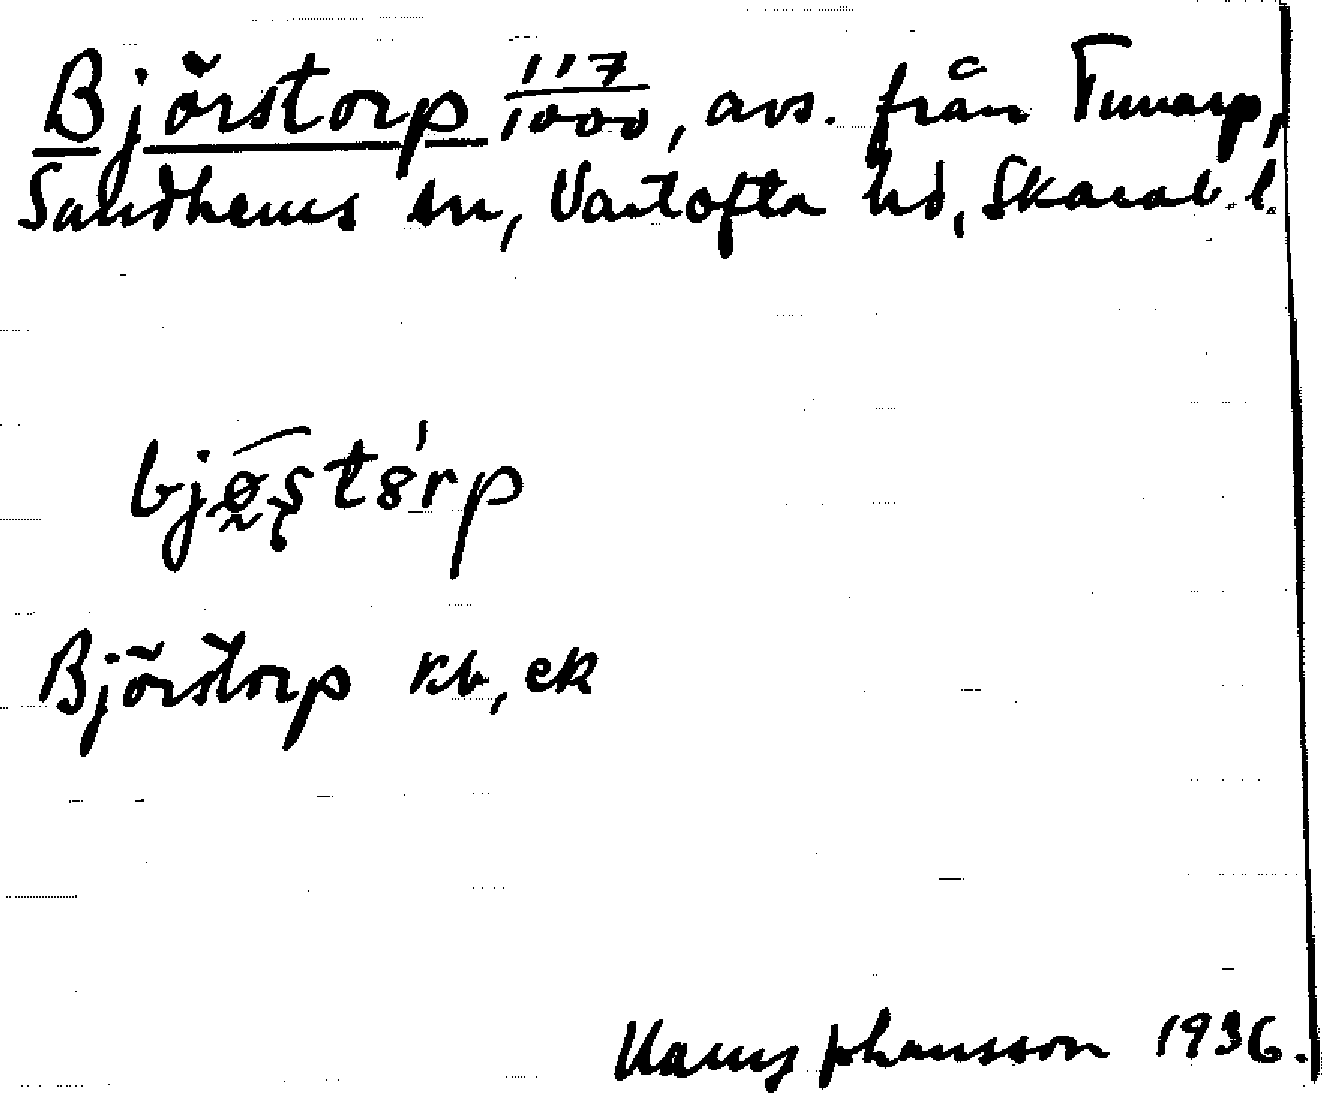 Björstorp 117/1000, avs. från Tunarp,
Sandhems sn, Vartofta hd, Skarab. l.
Björstorp kb, ek
Johansson 1936.